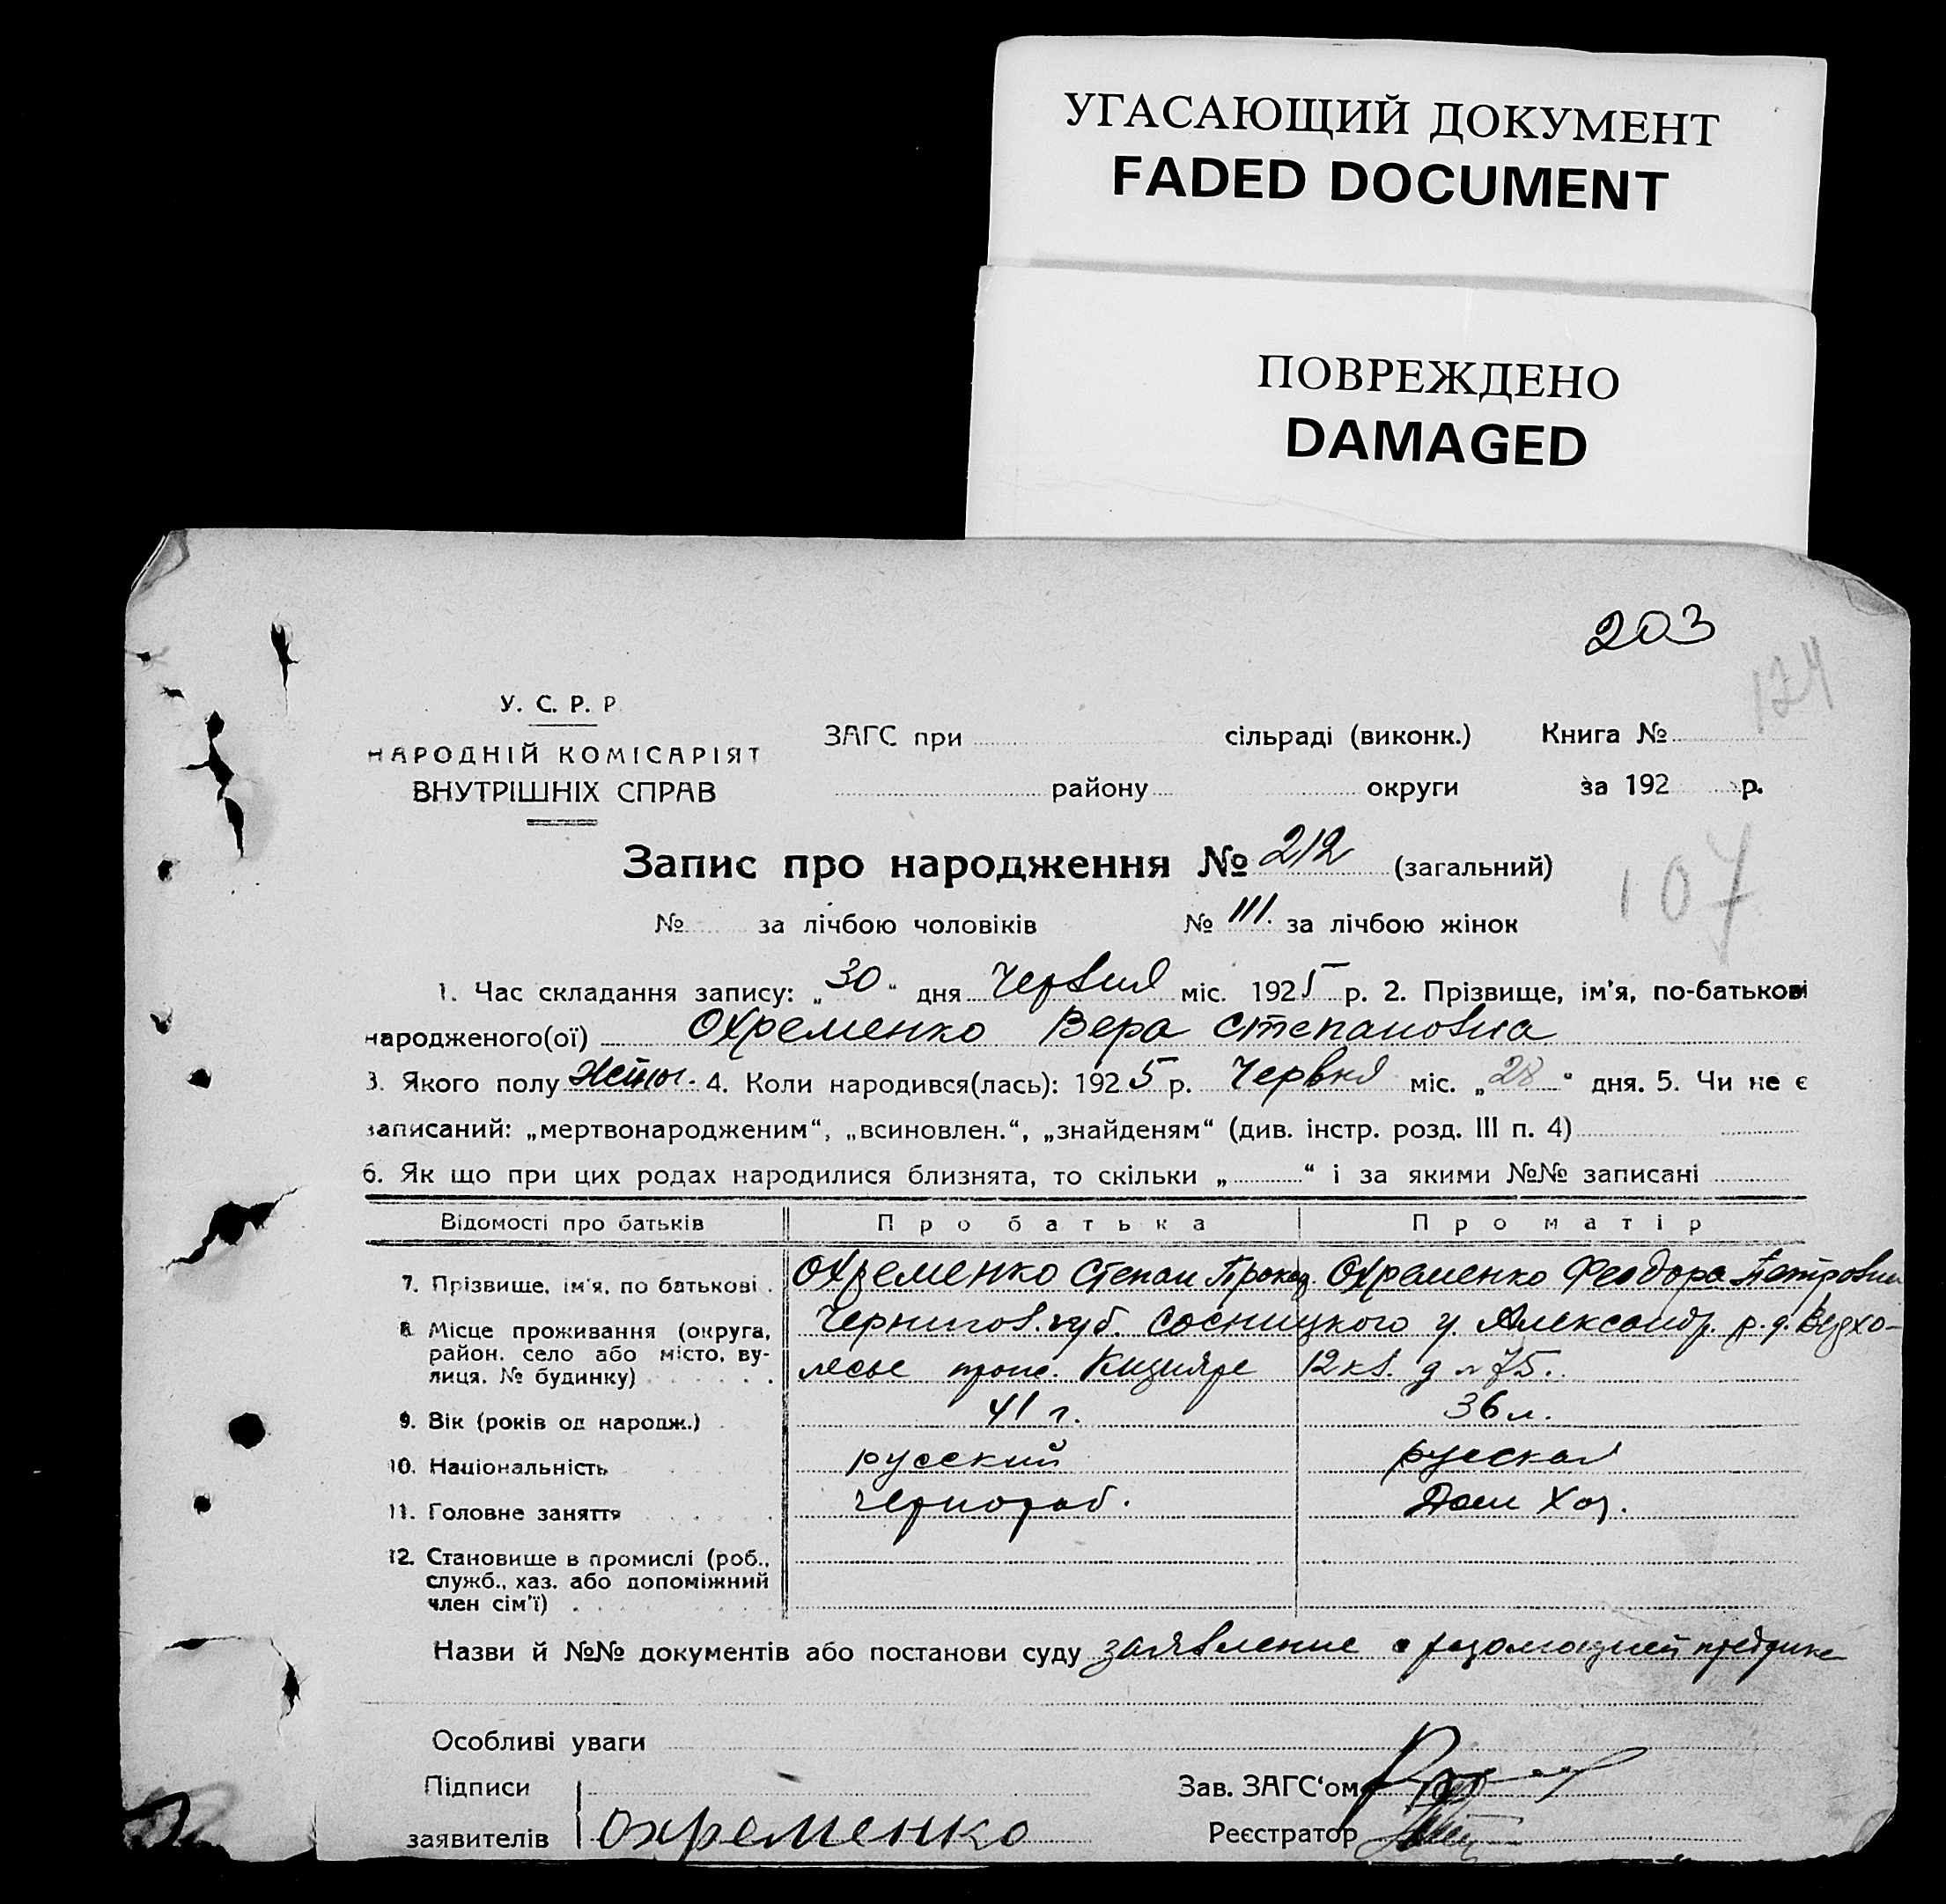 УГАСАЮЩИЙ ДОКУМЕНТ
FADED DOCUMENT
ПОВРЕЖДЕНО
DAMAGED
203
174
У. С. Р. Р
НАРОДНІЙ КОМІСАРІЯТ
ВНУТРІШНІХ СПРАВ
ЗАГС при сільраді (виконк.) Книга №
району округи за 192 р.
Запис про народження № 212 (загальний)
107
№ за лічбою чоловіків № 111. за лічбою жінок
1. Час складання запису: „30“ дня Червня міс. 1925 р. 2. Прізвище, ім'я, по-батькові
народженого(ої) Охременко Вера Степановна
3. Якого полу 4. Коли народився(лась): 1925 р. Червня міс. „28“ дня. 5. Чи не є
записаний: „мертвонародженим“, „всиновлен.“, „знайденям“ (див. інстр. розд. III п. 4)
6. Як що при цих родах народилися близнята, то скільки „ “ і за якими №№ записані
Відомості про батьків Про батька Про матір
7. Прізвище, ім'я, по батькові. Охременко Степан Охременко Феодора Петровна
8. Місце проживання (округа, район, село або місто, вулиця, № будинку) Чернигов. губ. Сосницкого у. Александр. р. д.
12 кв. д № 75.
9. Вік (років од народж.) 41 г. 36 л.
10. Національність русский русская
11. Головне заняття чернораб. Дом Хоз.
12. Становище в промислі (роб., служб., хаз. або допоміжний член сім'ї)
Назви й №№ документів або постанови суду заявление с резолюцией
Особливі уваги
Підписи Зав. ЗАГС'ом
заявителів Охременко Реєстратор